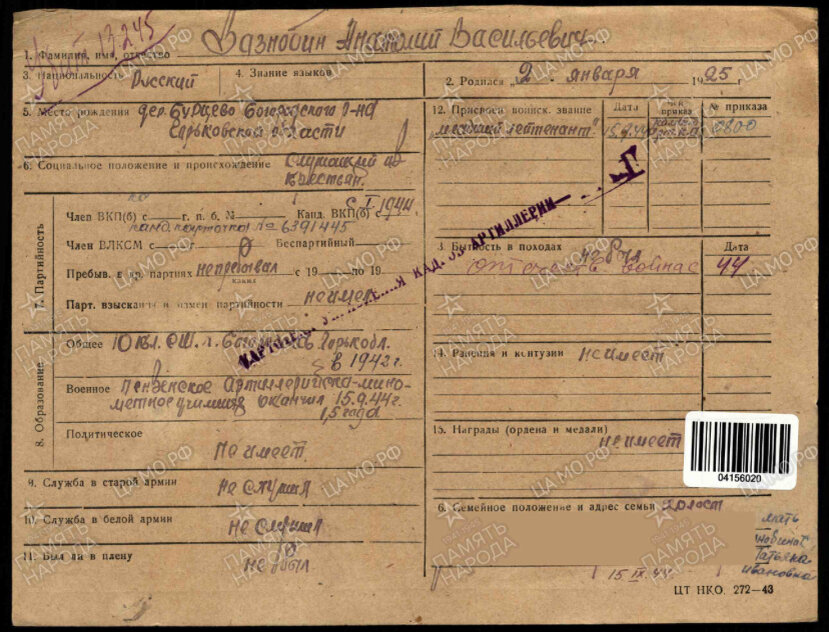 Убит 13.2.45
1. Фамилия, имя, отчество Вазнобин Анатолий Васильевич
3. Национальность Русский 4. Знание языков
2. Родился „2" января 1925 г.
5. Место рождения дер. Бурцево Богородского р-на
Горьковской области
6. Социальное положение и происхождение Служащий из
крестьян.
7. Партийность
Член ВКП(б) с г. п. б. № Канд. ВКП(б) с I 1944
канд карточка № 6391445
Член ВЛКСМ с г. Беспартийный
Пребыв. в др. партиях не пребывал с 19 по 19
каких
Парт. взыскания и измен партийности не имел
8. Образование
Общее 10 кл. СШ. г. Богородск Горьк обл.
в 1942 г.
Военное Пензенское Артиллерийско-мино-
метное училище окончил 15.9.44 г.
1,5 года
Политическое
Не имеет.
9. Служба в старой армии
не служил
10. Служба в белой армии
не служил
11. Был ли в плену
не был
12. Присвоен воинск. звание Дата Чей приказ № приказа
„младший лейтенант" 15.9.44 0800
КАРТОЧКА УПРАВЛЕНИЯ КАД. АРТИЛЛЕРИИ
3. Бытность в походах Дата
отечеств война с 44
14. Ранения и контузии не имеет
15. Награды (ордена и медали)
не имеет
04156020
6. Семейное положение и адрес семьи холост
мать
Татьяна
Ивановна
15 IX. 44
ЦТ НКО. 272—43
ПАМЯТЬ НАРОДА
ЦАМО.РФ